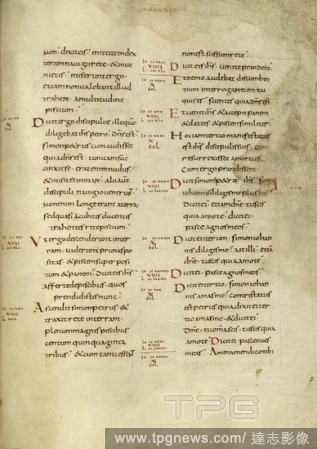 non; dicit eis mittite in dex
teram navigii rete & inve
nietis; miserunt ergo
et iam non valebant illud
trahere a multitudine
piscium;
Dicit ergo discipulus ille quem
diligebat ihs petro dns est
simon petrus cum audisset
quia dns est tunica suc
cinxit se erat enim nudus
& misit se in mare; alii aut
discipuli navigio venerunt
non enim longe erant a terra
sed quasi a cubitis ducentis
trahentes rete piscium
Ut ergo descenderunt in ter
ram viderunt prunas po
sitas & piscem super posi
tum & panem; Dicit eis ihs
afferte de piscibus quos
prendidistis nunc
Ascendit simon petrus &
traxit rete in terram
plenum magnis piscibus
centum quinquaginta
tribus & cum tanti essent
non est scissum rete
Dicit eis ihs venite prandete
Et nemo audebat discumben
tium interrogare eum tu
quis es scientes quia dns est
Et venit ihs & accepit panem
& dat eis & piscem similiter
Hoc iam tertio manifestatus
est ihs discipulis suis cum sur
rexisset a mortuis
Dicit simoni petro ihs simon
iohannis diligis me plus his
Dicit ei etiam dne tu scis
quia amo te dicit ei
pasce agnos meos
Dicit ei iterum simon iohan
nis diligis me ait illi etiam
dne tu scis quia amo te
Dicit ei pasce agnos meos
Dicit ei tertio simon iohan
nis amas me contristatus
est petrus quia dixit ei ter
tio amas me & dicit ei
dne tu omnia scis tu scis quia
amo te Dicit ei pasce oves
meas Amen amen dico tibi
TPG
www.tpgnews.com / 達志影像